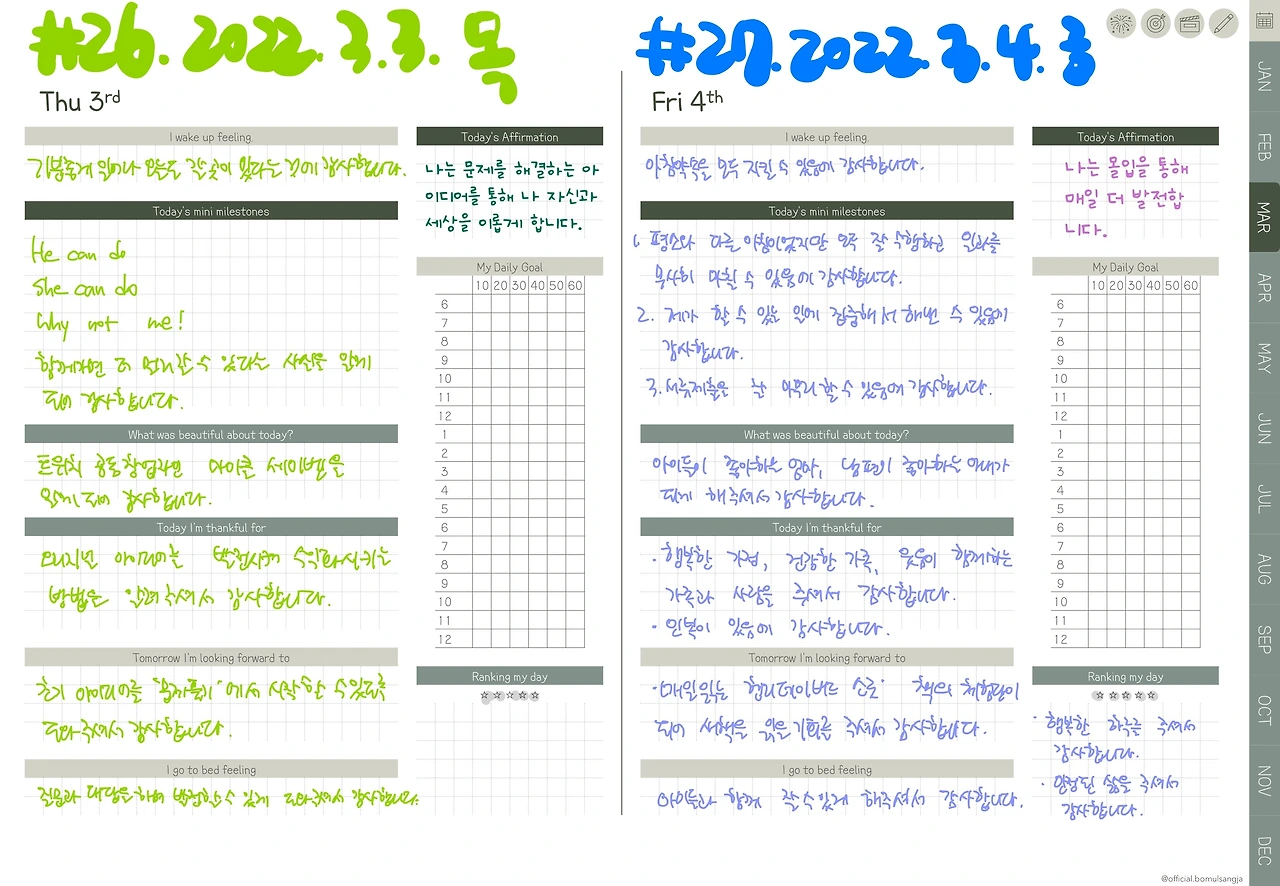 #26. 2022. 3. 3. 목
Thu 3rd
I wake up feeling,
기분좋게 일어나 오늘도 갈 곳이 있다는 것에 감사합니다.
Today's mini milestones
He can do
She can do
Why not me!
함께라면 더 멀리 갈 수 있다는 사실을 알게
되어 감사합니다.
What was beautiful about today?
트위치 공동창업자인 마이클 세이벨을
알게 되어 감사합니다.
Today I'm thankful for
아이디어를 발전시켜 수익화시키는
방법을 알려주셔서 감사합니다.
Tomorrow I'm looking forward to
초기 아이디어를 에서 시작할 수 있도록
도와주셔서 감사합니다.
I go to bed feeling
질문과 대답을 하며 발전할 수 있게 도와주셔서 감사합니다.
Today's Affirmation
나는 문제를 해결하는 아
이디어를 통해 나 자신과
세상을 이롭게 합니다.
My Daily Goal
10 20 30 40 50 60
6
7
8
9
10
11
12
1
2
3
4
5
6
7
8
9
10
11
12
Ranking my day
#27. 2022. 3. 4. 금
Fri 4th
I wake up feeling,
아침약속을 모두 지킬 수 있음에 감사합니다.
Today's mini milestones
1. 평소와 다른 아침이었지만 모두 잘 수행하고 일과를
무사히 마칠 수 있음에 감사합니다.
2. 제가 할 수 있는 일에 집중해서 해낼 수 있음에
감사합니다.
3. 서류제출을 잘 마무리 할 수 있음에 감사합니다.
What was beautiful about today?
아이들이 좋아하는 엄마, 남편이 좋아하는 아내가
되게 해주셔서 감사합니다.
Today I'm thankful for
· 행복한 가정, 건강한 가족, 웃음이 함께하는
가족과 사람을 주셔서 감사합니다.
· 인복이 있음에 감사합니다.
Tomorrow I'm looking forward to
·'매일 읽는 헬리데이브드 소로' 책의 체험단이
되어 새책을 읽을 기회를 주셔서 감사합니다.
I go to bed feeling
아이들과 함께 잘 수 있게 해주셔서 감사합니다.
Today's Affirmation
나는 몰입을 통해
매일 더 발전합
니다.
My Daily Goal
10 20 30 40 50 60
6
7
8
9
10
11
12
1
2
3
4
5
6
7
8
9
10
11
12
Ranking my day
· 행복한 하루를 주셔서
감사합니다.
· 안정된 삶을 주셔서
감사합니다.
JAN
FEB
MAR
APR
MAY
JUN
JUL
AUG
SEP
OCT
NOV
DEC
@official.bomulsangja